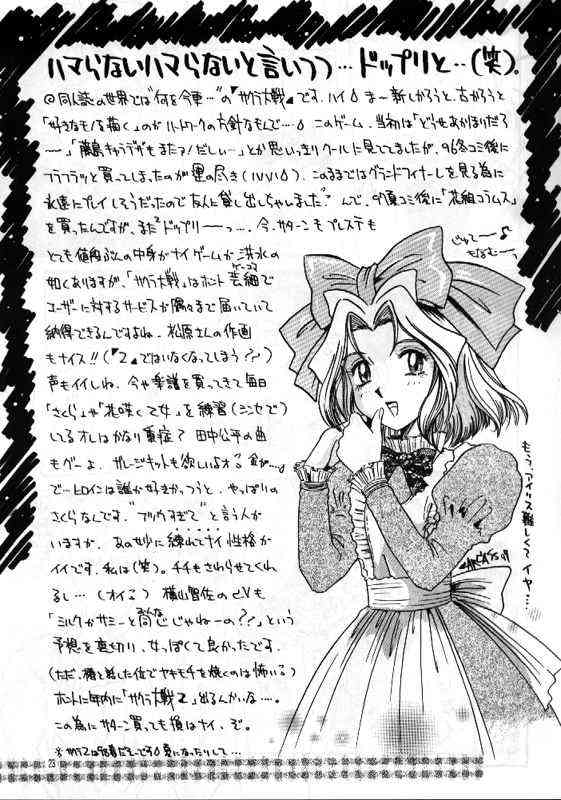 ハマらないハマらないと言いつつ…ドップリと…(笑)。
◎同人誌の世界では"何を今更…"の『サクラ大戦』です、ハイ。ま〜新しかろうと、古かろうと
「好きなモノを描く」のが の方針なもんで…。このゲーム、当初は「どうせあかほりだろ
〜」「藤島キャラデザもまたァ!だしぃ〜」とか思いっきりクールに見てましたが、96冬コミ後に
フラフラッと買ってしまったのが運の尽き 、このままではグランドフィナーレを見る為に
永遠にプレイしそうだったので友人に貸し出しちゃいました。んで、 コミ後に「花組コラムス」
を買ったんですが、またドップリ――っ…。今、サターンもプレステも
とても値段ぶんの中身がナイゲームが洪水の
如くありますが、「サクラ大戦」はホント芸細で
ユーザーに対するサービスが隅々まで届いていて
納得できるんですよね、松原さんの作画
もナイス!!(『2』ではいなくなってしまう??)
声もイイしね、今や楽譜を買ってきて毎日
「さくら」や「花咲く乙女」を練習(シンセで)
してるオレはかなり重症?田中公平の曲
もグーよ、ガレージキットも欲しいよォ 金が…。
で…ヒロインは誰が好きかっつうと、やっぱりの
さくらなんです。"フツウすぎて"と言う人が
いますが、あの妙に練れてナイ性格が
イイです、私は(笑)。チチもさわらせてくれ
るし…(オイ)横山智佐のCVも
「ミルクがサミーと同じじゃねーの??」という
予想を裏切り、女っぽくて良かったです。
(ただ、 と話した位でヤキモチを焼くのは怖いゐ)
ホントに年内に「サクラ大戦2」出るんかいな…。
この為にサターン買っても損はナイ、ぞ。
じゃて〜♪
もなむ〜っ
もう、アイリス難しくてイヤ…
23